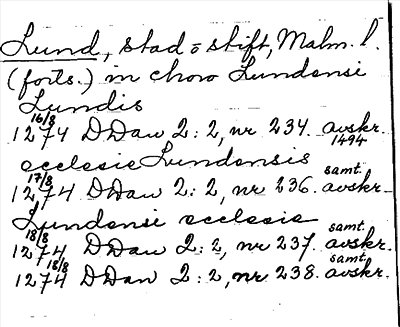 Lund, stad o stift, Malm. l.
(forts.) in choro Lundensi
Lundis
16/8 1274 DDan 2:2, nr 234. avskr. 1494
ecclesie Lundensis
17/8 1274 DDan 2:2, nr 236. samt. avskr.
Lundensi ecclesie
18/8 1274 DDan 2:2, nr 237. samt. avskr.
18/8 1274 DDan 2:2, nr 238. samt. avskr.